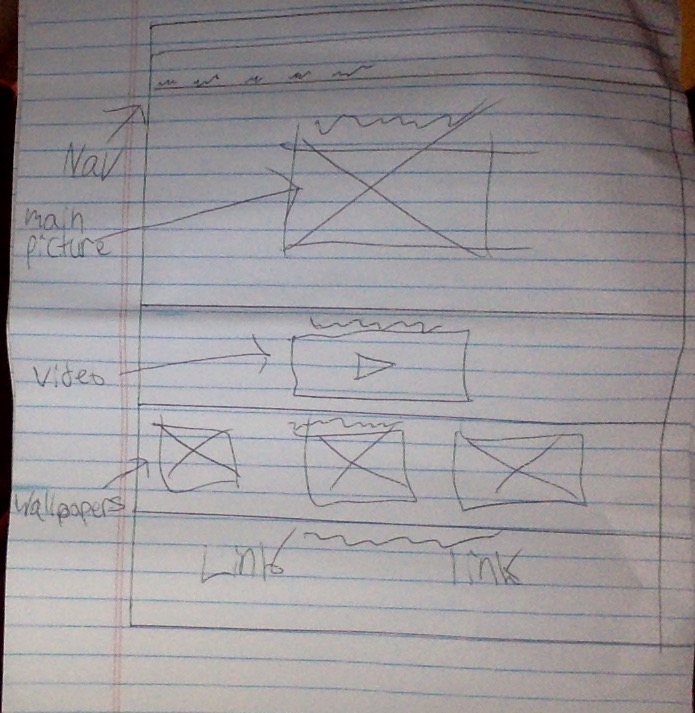 Nav
main
picture
Video
Wallpapers
Link Link